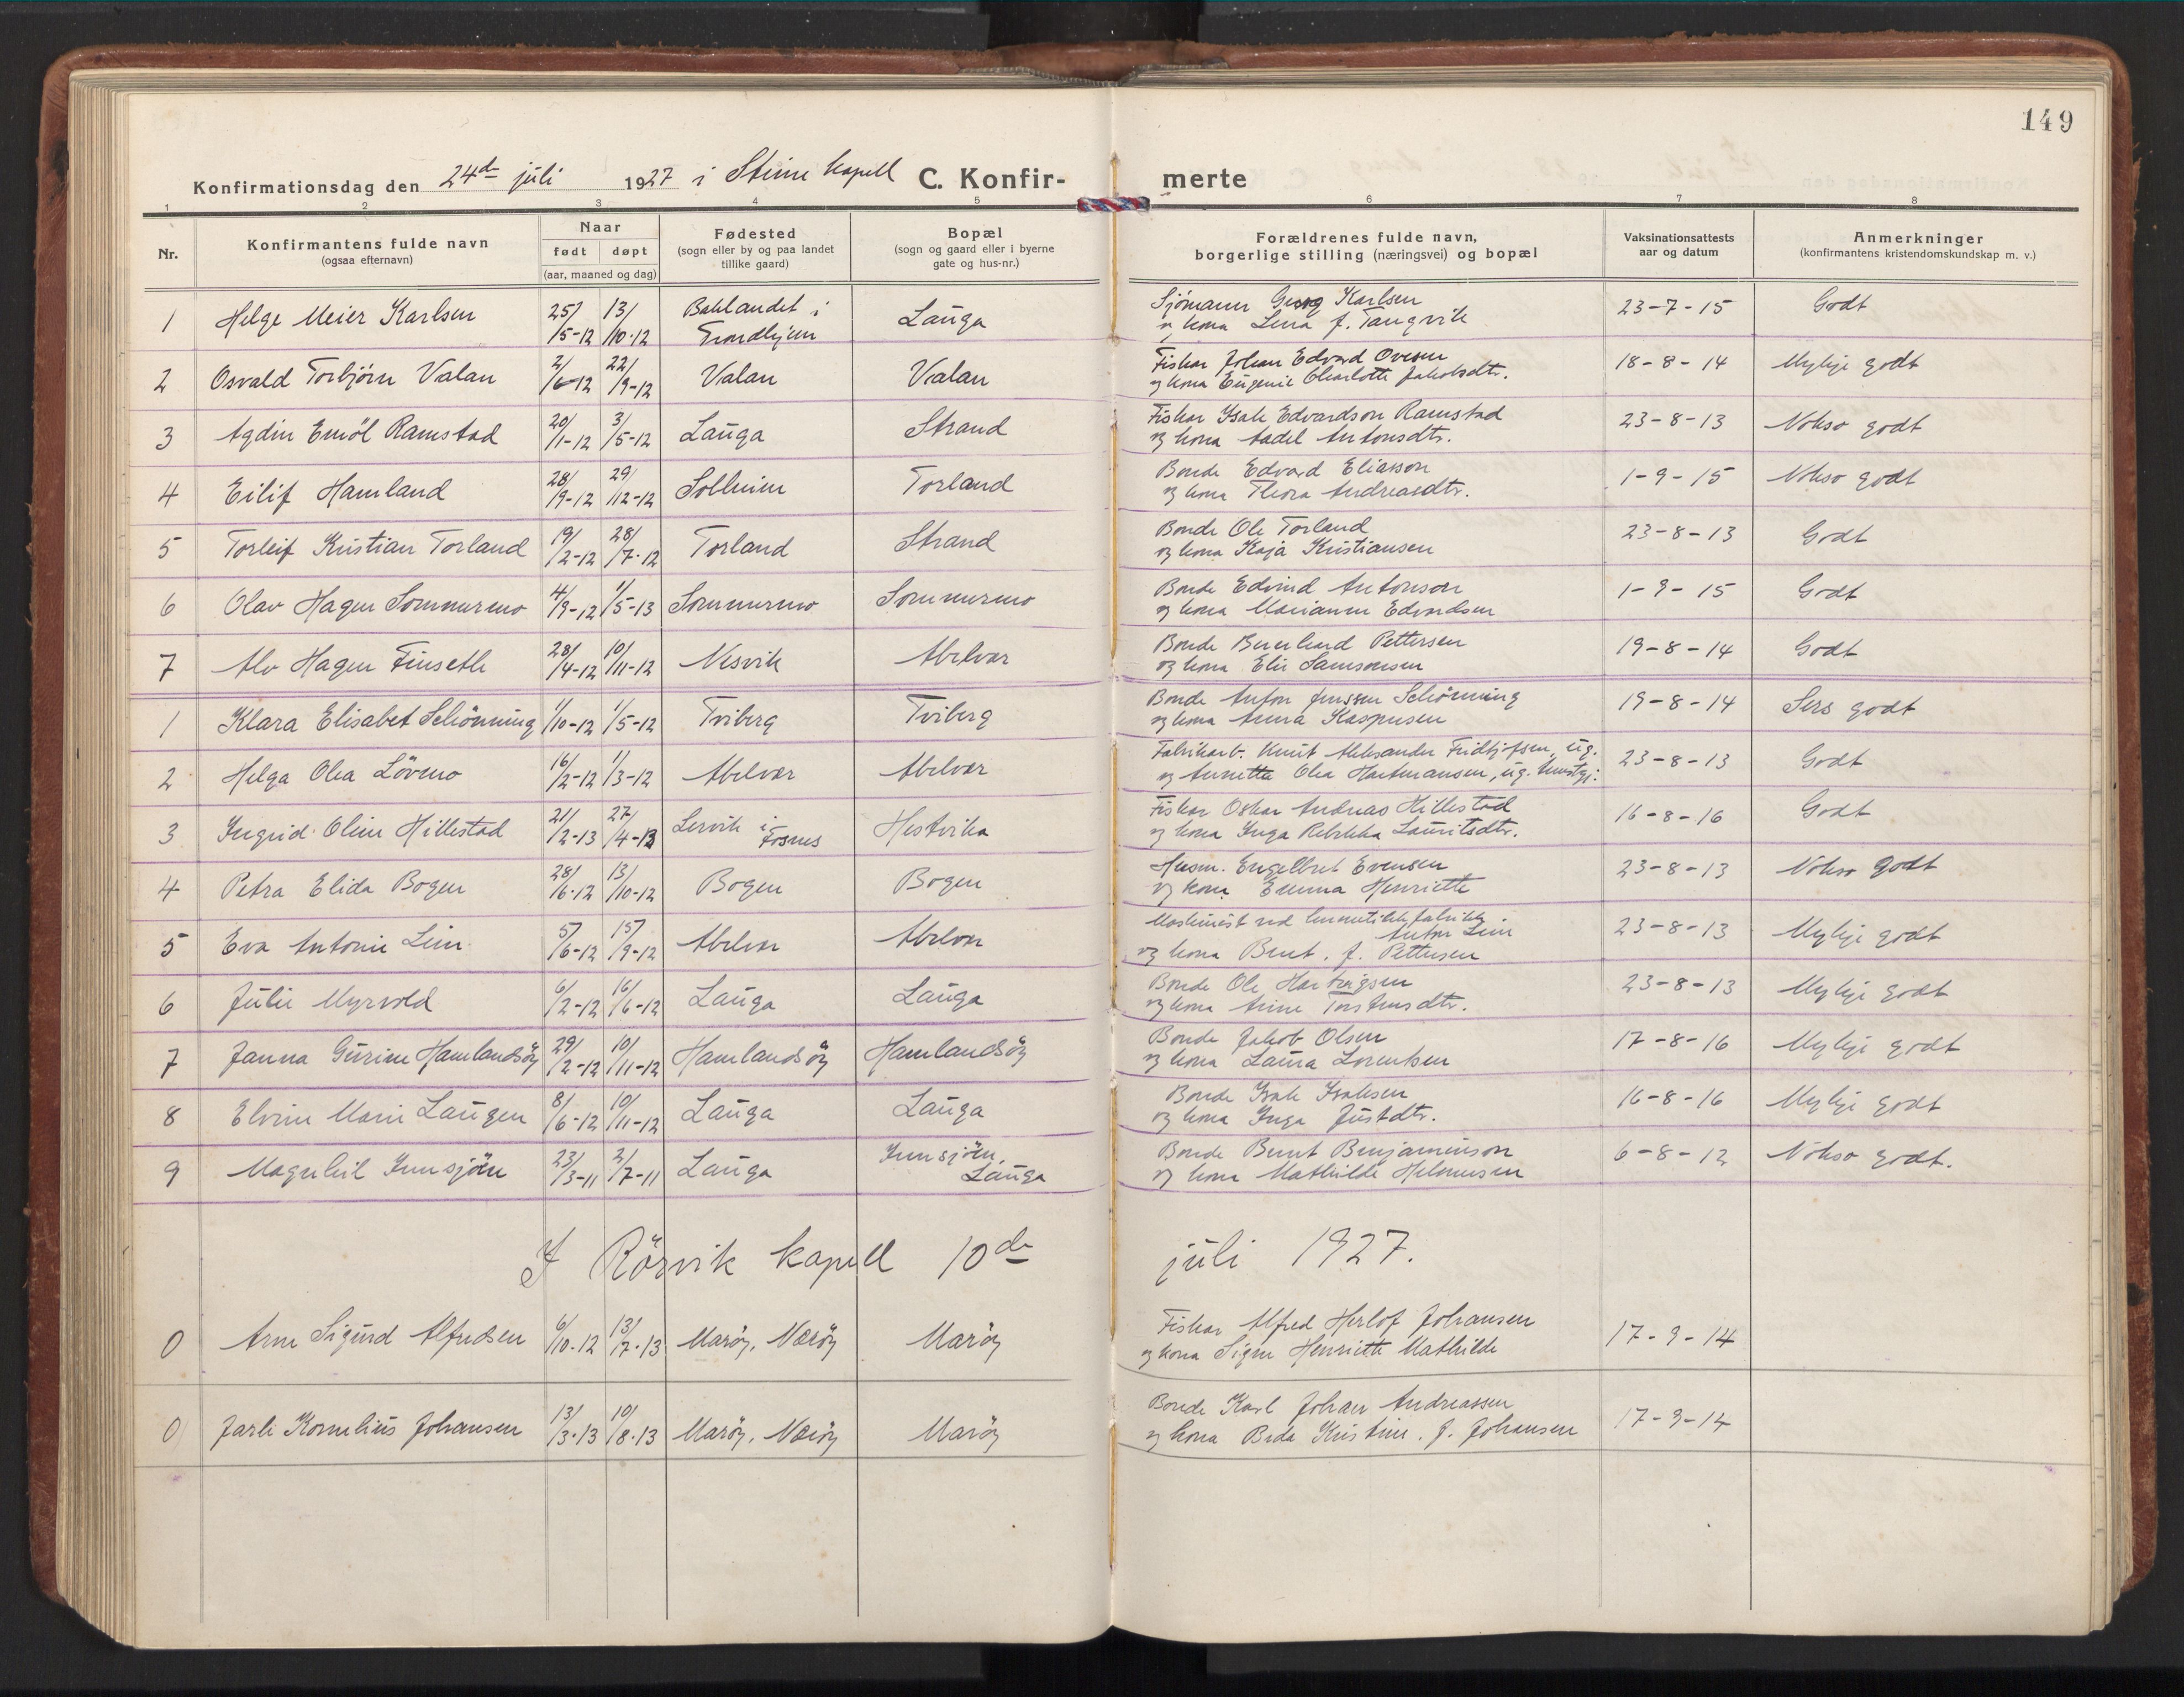 149
Konfirmationsdag den 24de juli 1927 i Steine kapell C. Konfir- merte
1 2 3 4 5 6 7 8
Nr. Konfirmantens fulde navn (ogsaa efternavn) Naar født døpt (aar, maaned og dag) Fødested (sogn eller by og paa landet tillike gaard) Bopæl (sogn og gaard eller i byerne gate og hus-nr.) Forældrenes fulde navn, borgerlige stilling (næringsvei) og bopæl Vaksinationsattests aar og datum Anmerkninger (konfirmantens kristendomskundskap m. v.)
1 Helge Meier Karlsen 25/5-12 13/10-12 Baklandet i Trondhjem Lauga Sjømann Georg Karlsen og kona Lena J. Tangvik 23-7-15 Godt
2 Osvald Torbjörn Valan 2/6-12 22/9-12 Valan Valan Fiskar Johan Edvard Ovesen og kona Eugenie Charlotte Jakobsdtr. 18-8-14 Mykje godt
3 Agdin Emöl Ramstad 20/1-12 3/5-12 Lauga Strand Fiskar Isak Edvardson Ramstad og kona Aadel Antonsdtr. 23-8-13 Nokso godt
4 Eilif Hamland 28/9-12 29/12-12 Solheim Torland Bonde Edvard Eliasson og kona Thora Andreasdtr. 1-9-15 Nokso godt
5 Torleif Kristian Torland 19/2-12 28/7-12 Torland Strand Bonde Ole Torland og kona Kaja Kristiansen 23-8-13 Godt
6 Olav Hagen Sommermo 4/9-12 1/5-13 Sommermo Sommermo Bonde Edvind Antonson og kona Marianne Edvardsen 1-9-15 Godt
7 Alv Hagen Finseth 28/4-12 10/11-12 Nesvik Abelvær Bonde Bernhard Pettersen og kona Elie Samsonsen 19-8-14 Godt
1 Klara Elisabet Schönning 1/10-12 1/5-12 Tviberg Tviberg Bonde Anton Jenssen Schönning og kona Anna Kaspersen 19-8-14 Sers godt
2 Helga Olea Lövmo 16/2-12 1/3-12 Abelvær Abelvær Fabrikarb. Knut Aleksander Fridtjofsen, ug. og Annette Olea Hartmansen, ug. 23-8-13 Godt
3 Ingrid Oline Hillestad 21/2-13 27/4-13 Lervik i Fosnes Hestvika Fiskar Oskar Andreas Hillestad og kona Inga Rebekka Lauritsdtr. 16-8-16 Godt
4 Petra Elida Bogen 28/6-12 13/10-12 Bogen Bogen Husm. Engelbret Evensen og kona Emma Henriette 23-8-13 Nokso godt
5 Eva Antonie Lein 5/6-12 15/9-12 Abelvær Abelvær Maskinist ved hermetikkfabrikk. Anton Lein og kona Bent. J. Pettersen 23-8-13 Mykje godt
6 Julie Myrvold 6/2-12 16/6-12 Lauga Lauga Bonde Ole Hartvigsen og kona Anne Torstensdtr. 23-8-13 Mykje godt
7 Janna Gurine Hamlandsöy 29/2-12 10/11-12 Hamlandsöy Hamlandsöy Bonde Jakob Olsen og kona Laura Lorentsen 17-8-16 Mykje godt
8 Elvine Marie Laugen 8/6-12 10/11-12 Lauga Lauga Bonde Isak Isaksen og kona Inga Justdtr. 16-8-16 Mykje godt
9 Magnhil Innsjöen 23/3-11 2/7-11 Lauga Innsjöen, Lauga Bonde Bernt Benjaminson og kona Mathilde Helmersen 6-8-12 Nokso godt.
I Rörvik kapell 10de juli 1927.
0 Arne Sigurd Alfredsen 6/10-12 13/7-13 Maröy, Næröy Maröy Fiskar Alfred Herlof Johansen og kona Signe Henriette Mathilde 17-9-14
0 Jarle Kornelius Johansen 13/3-13 10/8-13 Maröy, Næröy Maröy Bonde Karl Johan Andreassen og kona Beda Kristine. J. Johansen 17-9-14